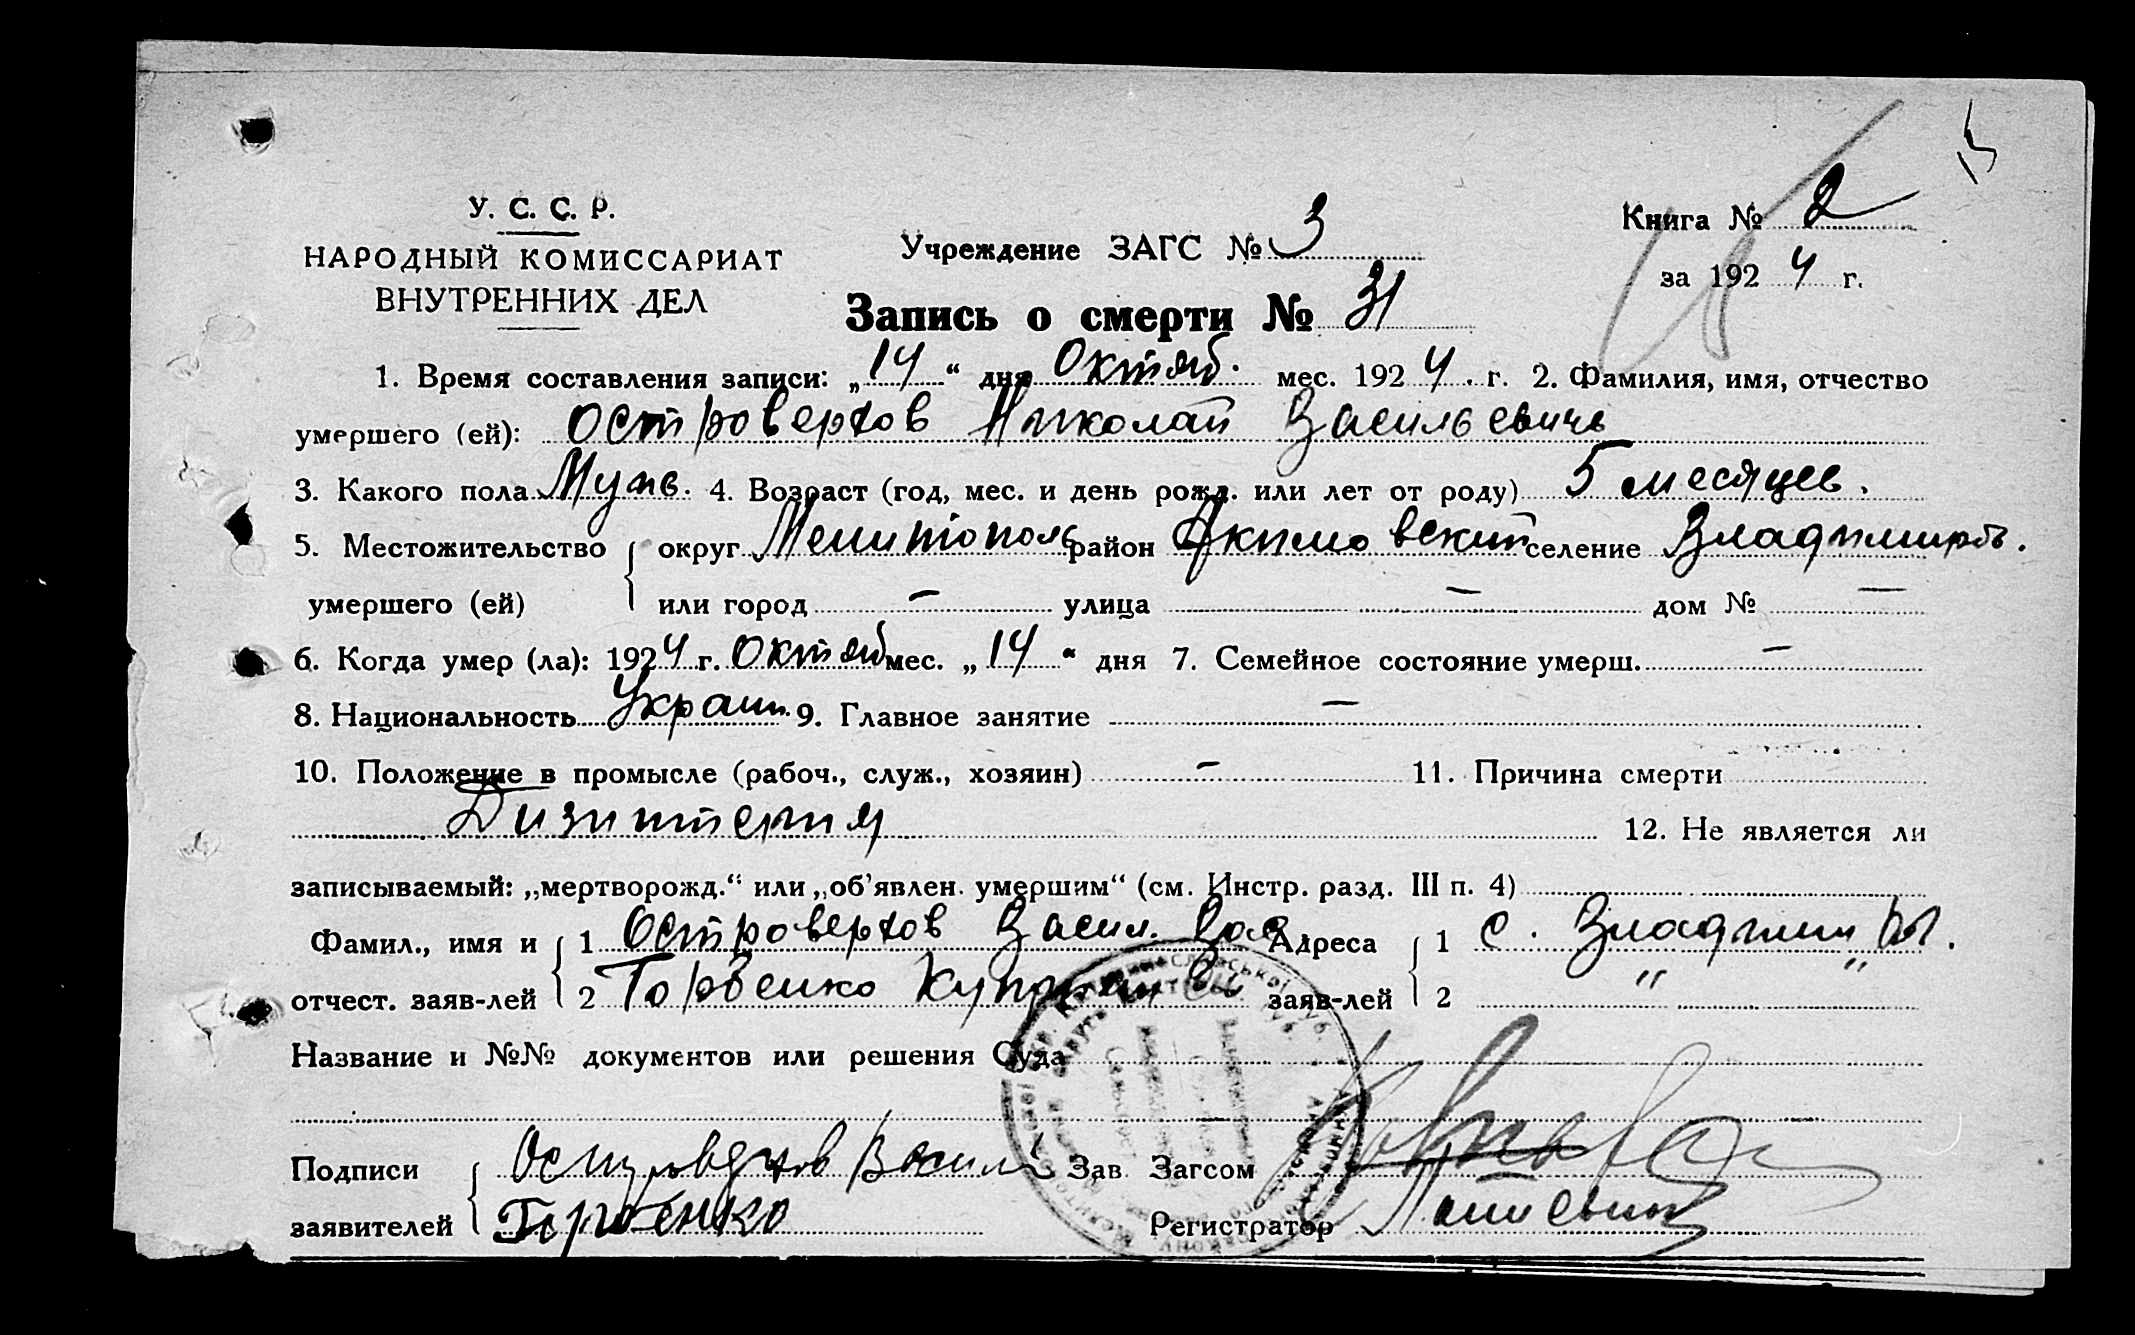 У. С. С. Р.
НАРОДНЫЙ КОМИССАРИАТ
ВНУТРЕННИХ ДЕЛ
Учреждение ЗАГС № 3
Книга № 2
за 1924 г.
Запись о смерти № 31
1. Время составления записи: „14“ дня Октяб. мес. 1924 г. 2. Фамилия, имя, отчество
умершего (ей): Островерхов Николай Васильевичь
3. Какого пола Мужс. 4. Возраст (год, мес. и день рожд. или лет от роду) 5 месяцев.
5. Местожительство округ Мелитополь район Акимовский селение Владимиров.
умершего (ей) или город — улица — дом № —
6. Когда умер (ла): 1924 г. Октяб мес. „14“ дня 7. Семейное состояние умерш. —
8. Национальность Украин. 9. Главное занятие —
10. Положение в промысле (рабоч., служ., хозяин) — 11. Причина смерти
Дизинтерия 12. Не является ли
записываемый: „мертворожд.“ или „об’явлен. умершим“ (см. Инстр. разд. III п. 4)
Фамил., имя и 1 Островерхов Васил. Адреса 1 с.
отчест. заяв-лей 2 Горбенко заяв-лей 2 " "
Название и №№ документов или решения Суда
Подписи Островерхов Васили Зав. Загсом
заявителей Горбенко Регистратор